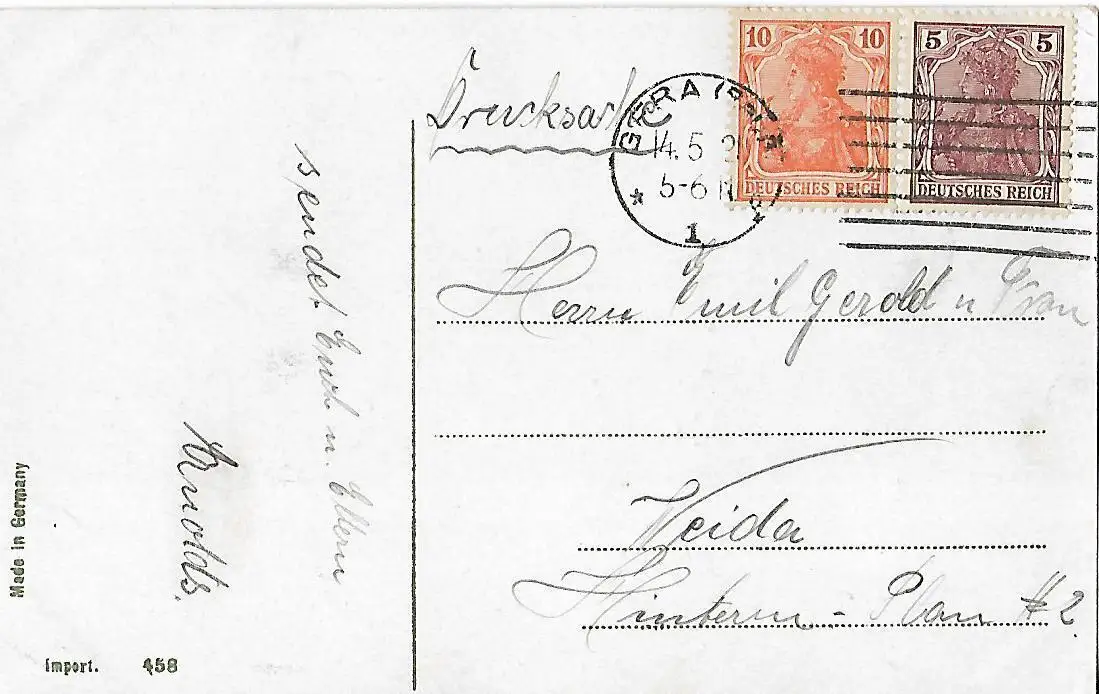 10 10
DEUTSCHES REICH
5 5
DEUTSCHES REICH
Drucksache
GERA (REUSS)
14. 5
5-6 N
* 1 *
Herrn Emil Gerold u Frau
Weida
Hinterm - Plan # 2
sendet Euch u. Eltern
Arnolds.
Made in Germany
Import. 458